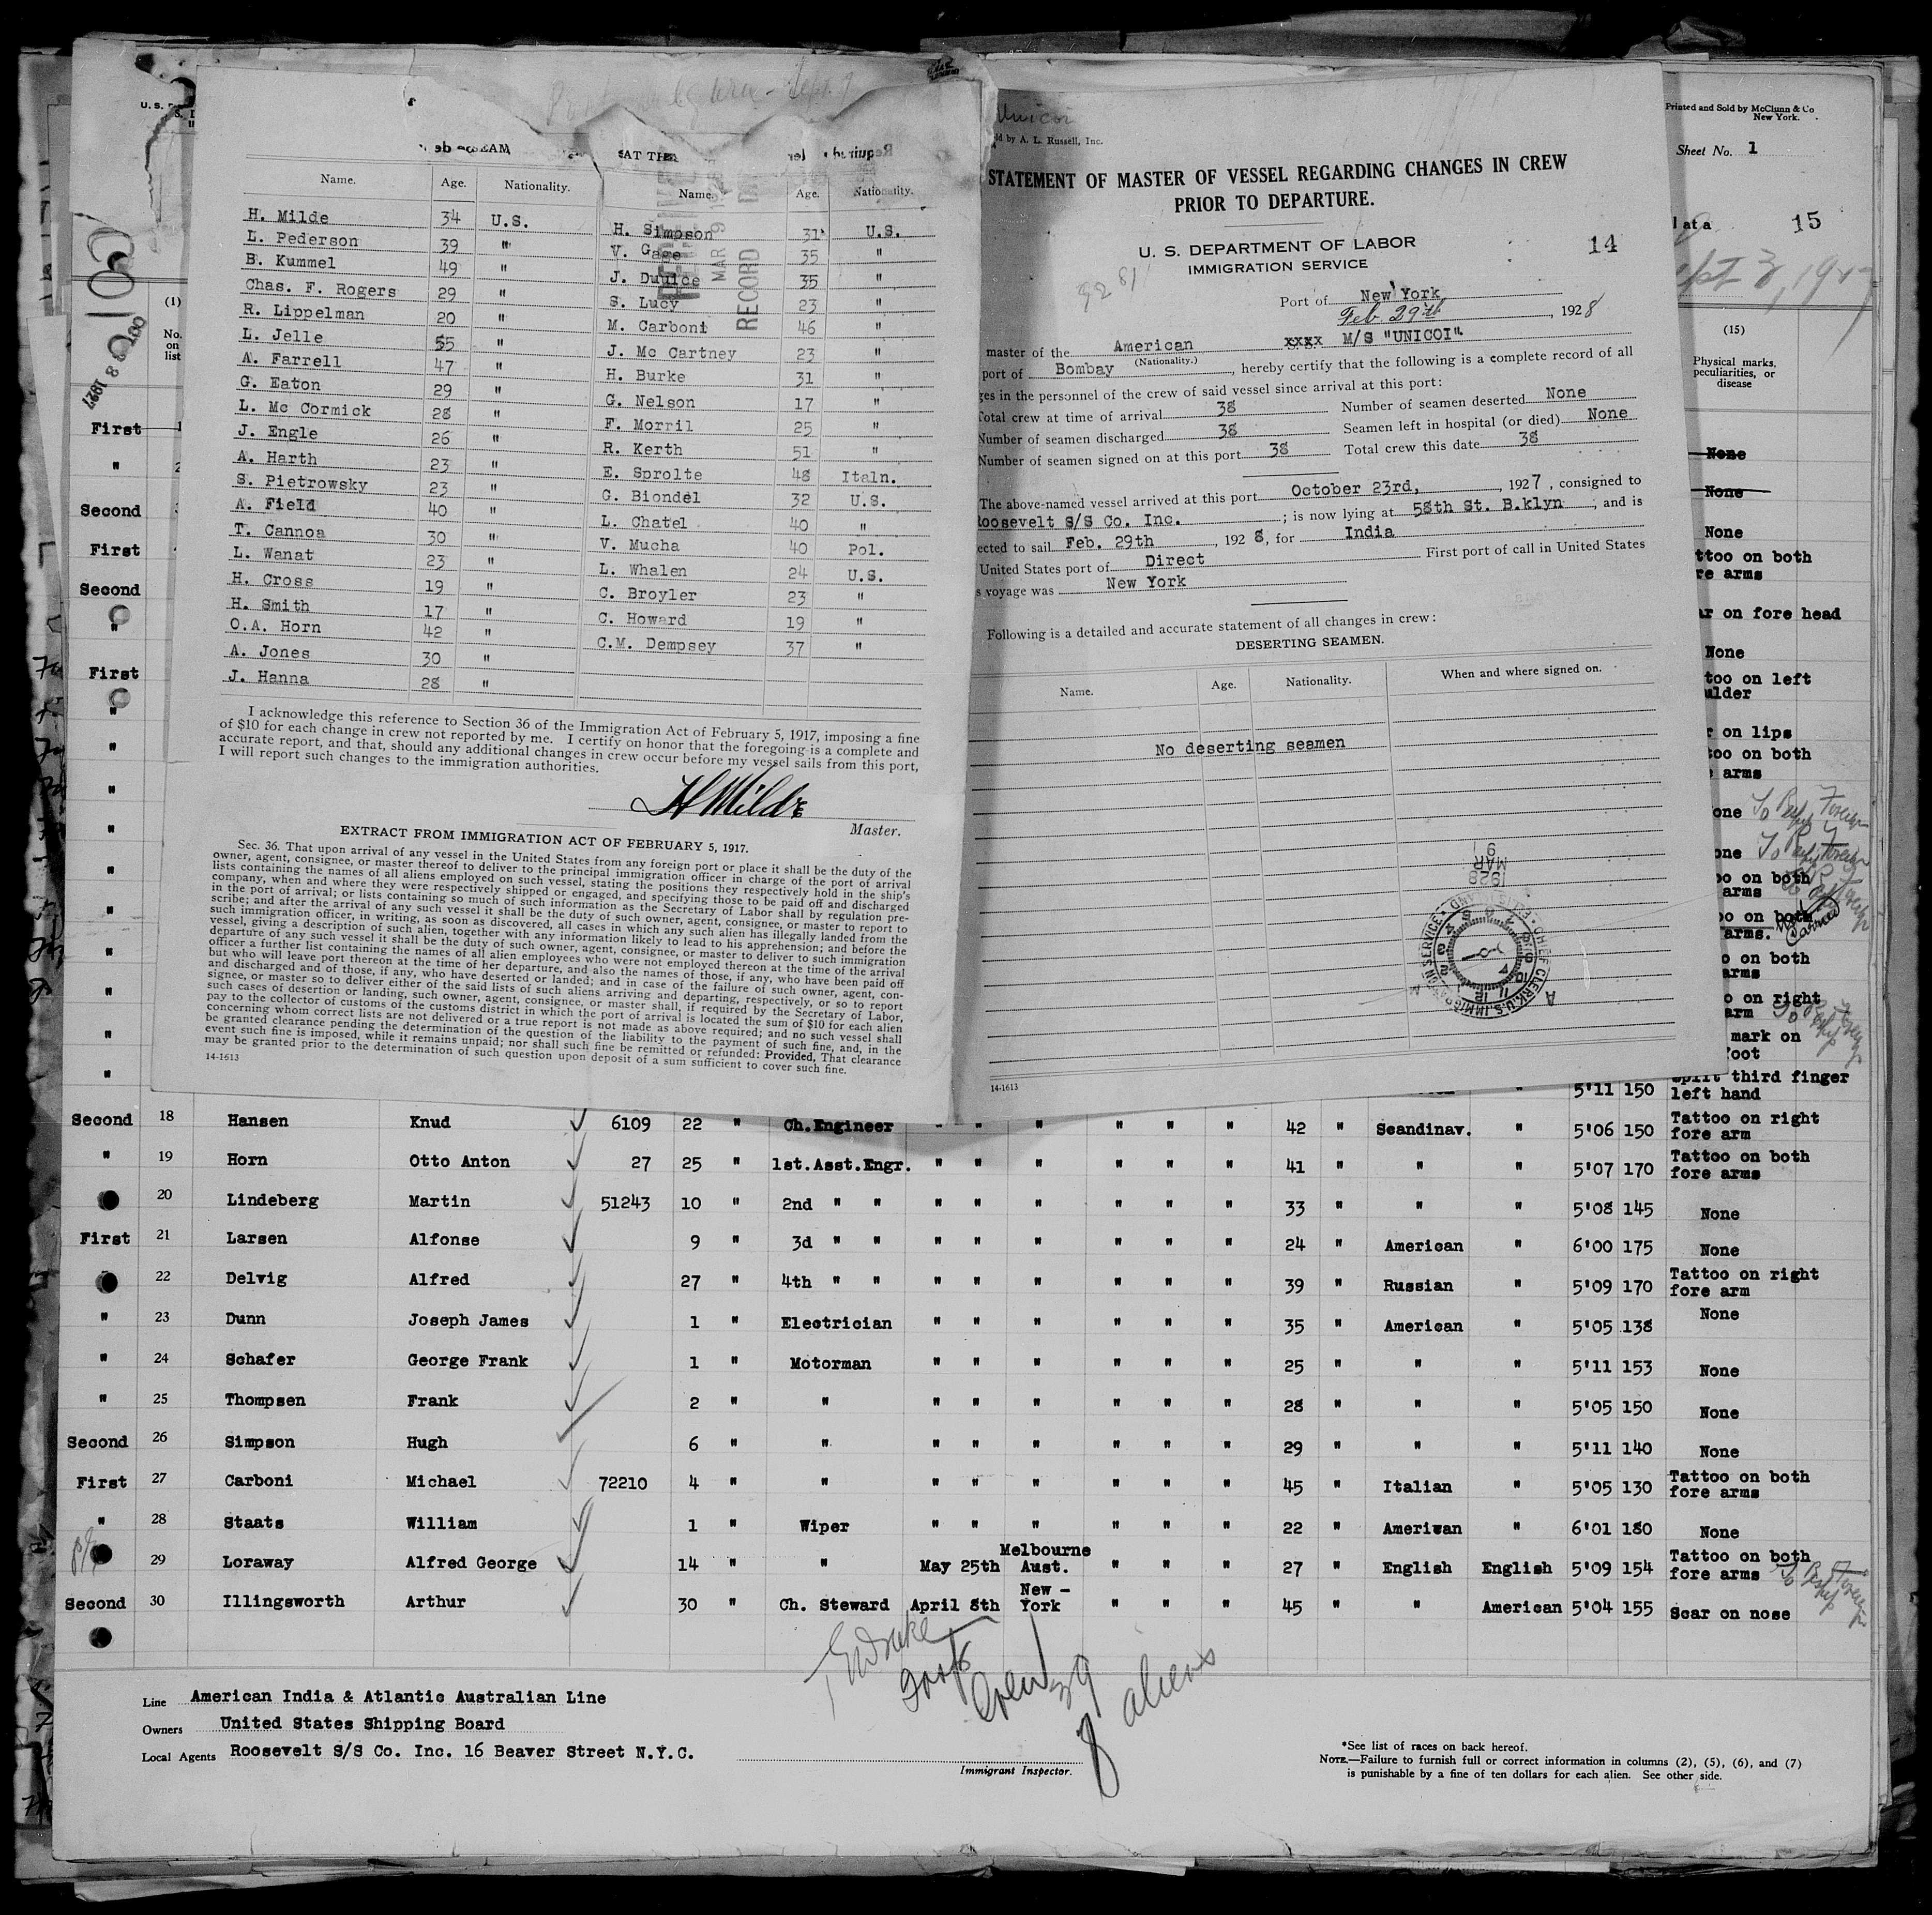 Name. Age. Nationality. Name. Age. Nationality.
H. Milde 34 U.S. H. Simpson 31 U.S.
L. Pederson 39 " V. Gage 35 "
B. Kummel 49 " J. Dudice 35 "
Chas. F. Rogers 29 " S. Lucy 23 "
R. Lippelman 20 " M. Carboni 46 "
L. Jelle 55 " J. Mc Cartney 23 "
A. Farrell 47 " H. Burke 31 "
G. Eaton 29 " G. Nelson 17 "
L. Mc Cormick 28 " F. Morril 25 "
J. Engle 26 " R. Kerth 51 "
A. Harth 23 " E. Sprolte 48 Italn.
S. Pietrowsky 23 " G. Biondel 32 U.S.
A. Field 40 " L. Chatel 40 "
T. Cannoa 30 " V. Mucha 40 Pol.
L. Wanat 23 " L. Whalen 24 U.S.
H. Cross 19 " C. Broyler 23 "
H. Smith 17 " C. Howard 19 "
O.A. Horn 42 " C.M. Dempsey 37 "
A. Jones 30 "
J. Hanna 28 "
I acknowledge this reference to Section 36 of the Immigration Act of February 5, 1917, imposing a fine
of $10 for each change in crew not reported by me. I certify on honor that the foregoing is a complete and
accurate report, and that, should any additional changes in crew occur before my vessel sails from this port,
I will report such changes to the immigration authorities.
H Milde
Master.
EXTRACT FROM IMMIGRATION ACT OF FEBRUARY 5, 1917.
Sec. 36. That upon arrival of any vessel in the United States from any foreign port or place it shall be the duty of the
owner, agent, consignee, or master thereof to deliver to the principal immigration officer in charge of the port of arrival
lists containing the names of all aliens employed on such vessel, stating the positions they respectively hold in the ship's
company, when and where they were respectively shipped or engaged, and specifying those to be paid off and discharged
in the port of arrival; or lists containing so much of such information as the Secretary of Labor shall by regulation pre-
scribe; and after the arrival of any such vessel it shall be the duty of such owner, agent, consignee, or master to report to
such immigration officer, in writing, as soon as discovered, all cases in which any such alien has illegally landed from the
vessel, giving a description of such alien, together with any information likely to lead to his apprehension; and before the
departure of any such vessel it shall be the duty of such owner, agent, consignee, or master to deliver to such immigration
officer a further list containing the names of all alien employees who were not employed thereon at the time of the arrival
but who will leave port thereon at the time of her departure, and also the names of those, if any, who have been paid off
and discharged and of those, if any, who have deserted or landed; and in case of the failure of such owner, agent, con-
signee, or master so to deliver either of the said lists of such aliens arriving and departing, respectively, or so to report
such cases of desertion or landing, such owner, agent, consignee, or master shall, if required by the Secretary of Labor,
pay to the collector of customs of the customs district in which the port of arrival is located the sum of $10 for each alien
concerning whom correct lists are not delivered or a true report is not made as above required; and no such vessel shall
be granted clearance pending the determination of the question of the liability to the payment of such fine, and, in the
event such fine is imposed, while it remains unpaid; nor shall such fine be remitted or refunded: Provided, That clearance
may be granted prior to the determination of such question upon deposit of a sum sufficient to cover such fine.
14-1613
MAR 9
RECORD
Unicoi
by A. L. Russell, Inc.
STATEMENT OF MASTER OF VESSEL REGARDING CHANGES IN CREW
PRIOR TO DEPARTURE.
U. S. DEPARTMENT OF LABOR
IMMIGRATION SERVICE
14
Port of New York
Feb. 29th, 1928
master of the American xxxx M/S "UNICOI"
(Nationality.)
port of Bombay, hereby certify that the following is a complete record of all
ges in the personnel of the crew of said vessel since arrival at this port:
Total crew at time of arrival 38 Number of seamen deserted None
Number of seamen discharged 38 Seamen left in hospital (or died) None
Number of seamen signed on at this port 38 Total crew this date 38
The above-named vessel arrived at this port October 23rd, 1927, consigned to
Roosevelt S/S Co. Inc. ; is now lying at 58th St. B.klyn ; and is
ected to sail Feb. 29th, 1928, for India
United States port of Direct First port of call in United States
s voyage was New York
Following is a detailed and accurate statement of all changes in crew:
DESERTING SEAMEN.
Name. Age. Nationality. When and where signed on.
No deserting seamen
MAR 9
1928
14-1613
Printed and Sold by McClunn & Co
New York.
Sheet No. 1
15
(1)
No.
on
list
(15)
Physical marks,
peculiarities, or
disease
First 1 None
" 2 None
Second None
First ttoo on both
re arms
Second r on fore head
" None
First too on left
ulder
" r on lips
" too on both
arms
" one To Reship Foreign
" one To Reship Foreign
" oo on both
arms
" oo on both
arms.
" o on both
arms
" o on right
arm To Reship Foreign
" mark on
foot
" 5'11 150 Split third finger
left hand
Second 18 Hansen Knud 6109 22 " Ch.Engineer " " " " " " 42 " Scandinav. " 5'06 150 Tattoo on right
fore arm
" 19 Horn Otto Anton 27 25 " 1st.Asst.Engr. " " " " " " 41 " " " 5'07 170 Tattoo on both
fore arms
20 Lindeberg Martin 51243 10 " 2nd " " " " " " " " 33 " " " 5'08 145 None
First 21 Larsen Alfonse 9 " 3d " " " " " " " " 24 " American " 6'00 175 None
22 Delvig Alfred 27 " 4th " " " " " " " " 39 " Russian " 5'09 170 Tattoo on right
fore arm
" 23 Dunn Joseph James 1 " Electrician " " " " " " 35 " American " 5'05 138 None
" 24 Schafer George Frank 1 " Motorman " " " " " " 25 " " " 5'11 153 None
" 25 Thompsen Frank 2 " " " " " " " " 28 " " " 5'05 150 None
Second 26 Simpson Hugh 6 " " " " " " " " 29 " " " 5'11 140 None
First 27 Carboni Michael 72210 4 " " " " " " " " 45 " Italian " 5'05 130 Tattoo on both
fore arms
" 28 Staats William 1 " Wiper " " " " " " 22 " Ameriwan " 6'01 180 None
29 Loraway Alfred George 14 " " May 25th Melbourne Aust. " " " 27 " English English 5'09 154 Tattoo on both
fore arms To Reship Foreign
Second 30 Illingsworth Arthur 30 " Ch. Steward April 8th New - York " " " 45 " " American 5'04 155 Scar on nose
Crew 39
8 aliens
Line American India & Atlantic Australian Line
Owners United States Shipping Board
Local Agents Roosevelt S/S Co. Inc. 16 Beaver Street N.Y.C.
Immigrant Inspector.
*See list of races on back hereof.
NOTE.—Failure to furnish full or correct information in columns (2), (5), (6), and (7)
is punishable by a fine of ten dollars for each alien. See other side.